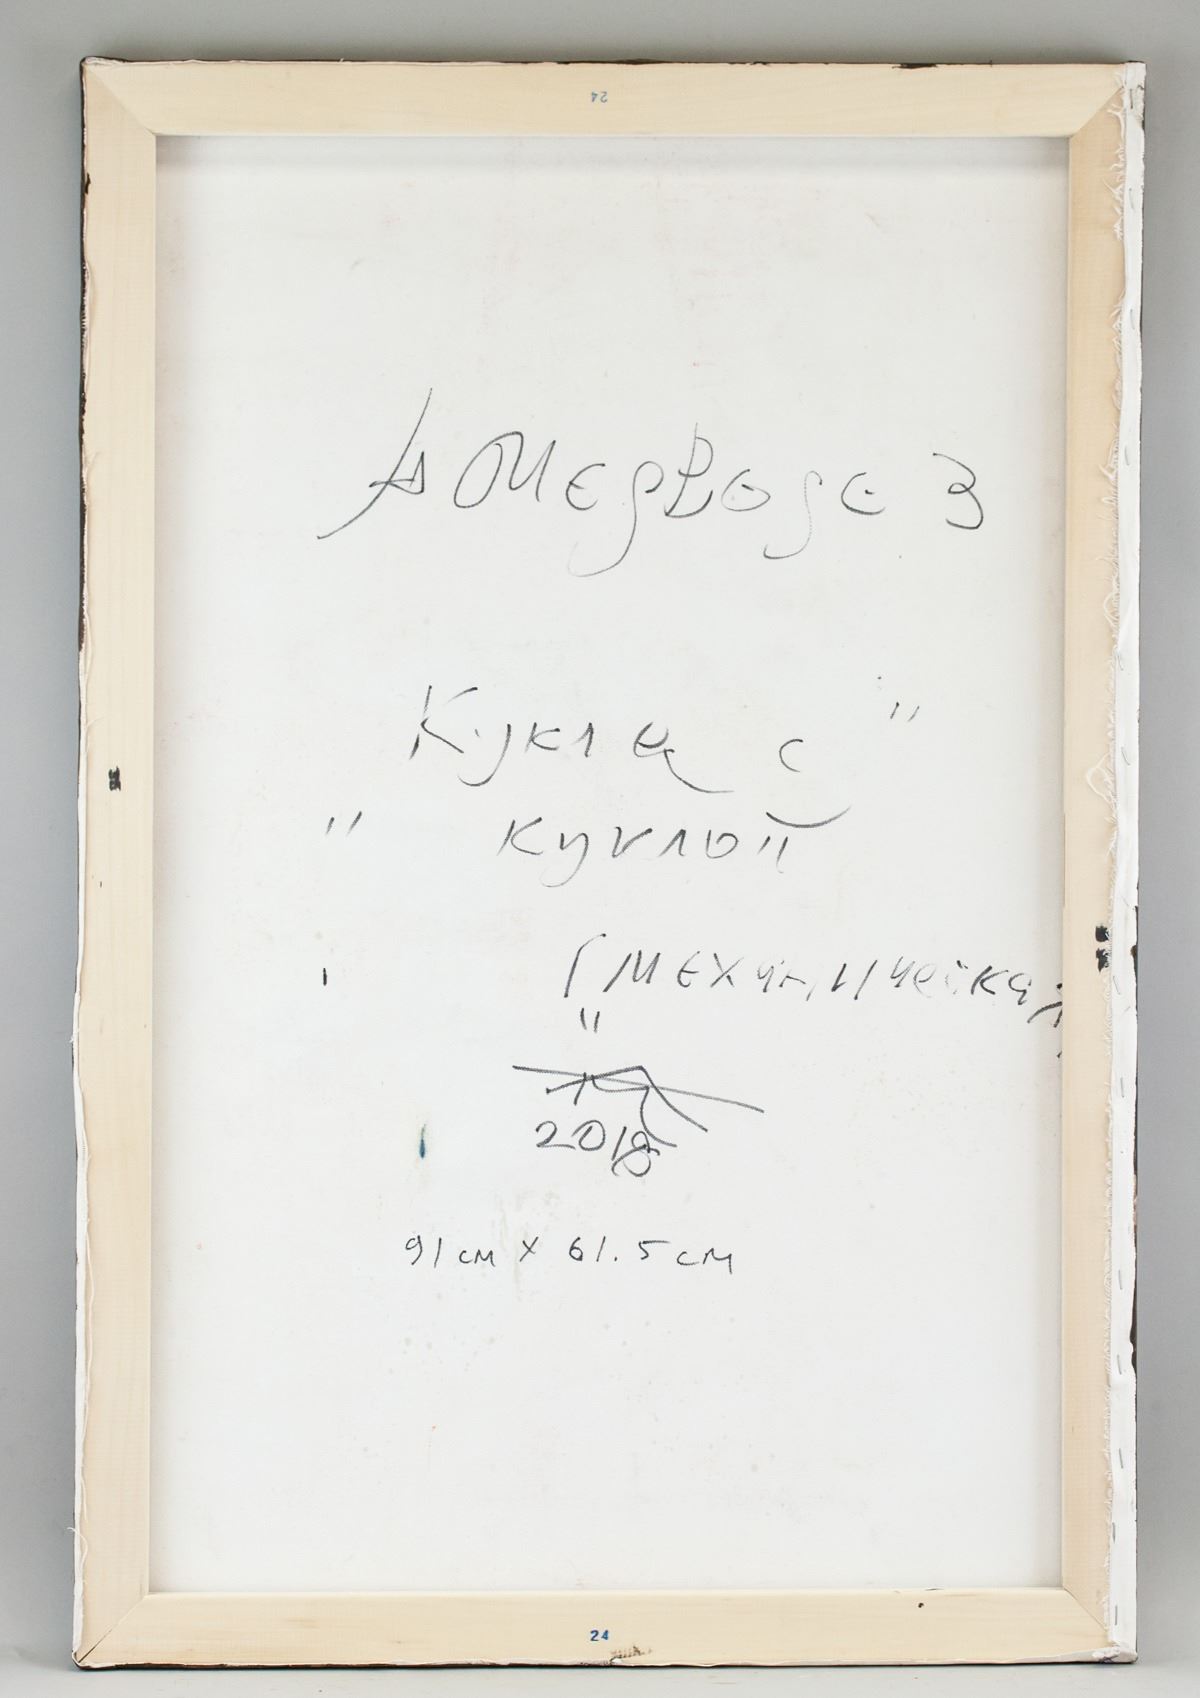 24
А Медведев
Кукла с "
" куклой
(механическая
"
2018
91 см x 61.5 см
24